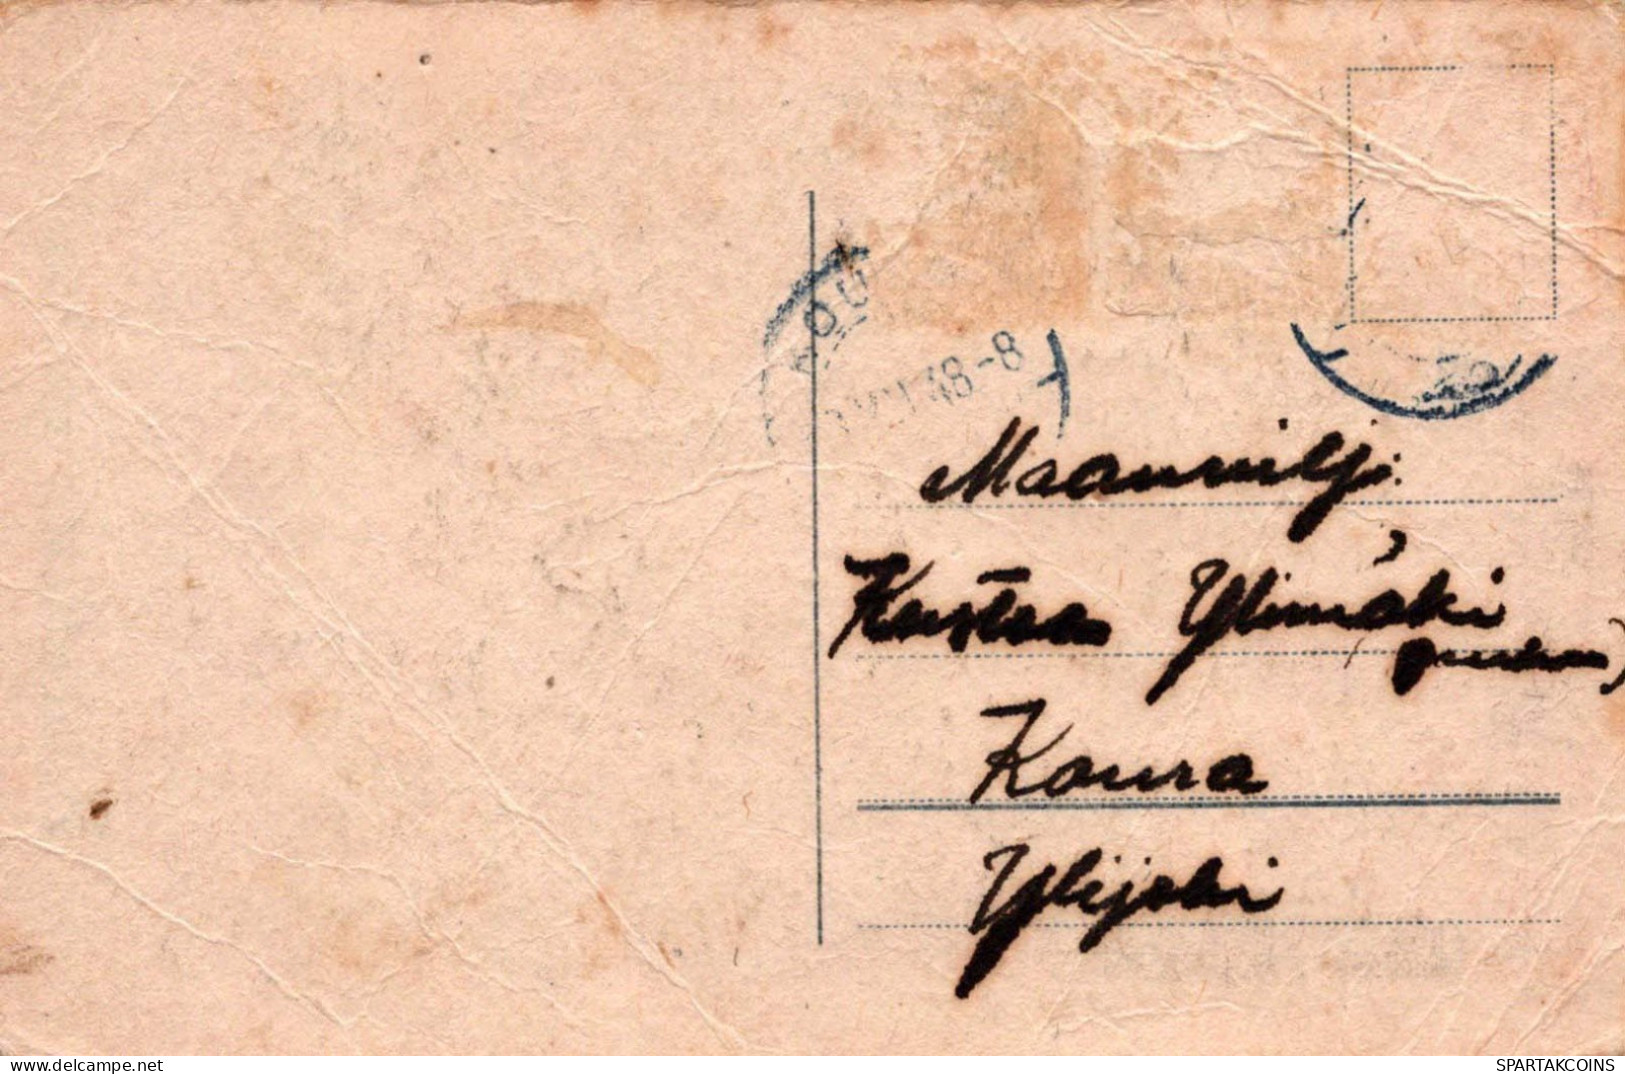 KOU
48-8
Maanvilj.
Kustaa Ylimäki
Koura
Ylijoki
www.delcampe.net
SPARTAKCOINS